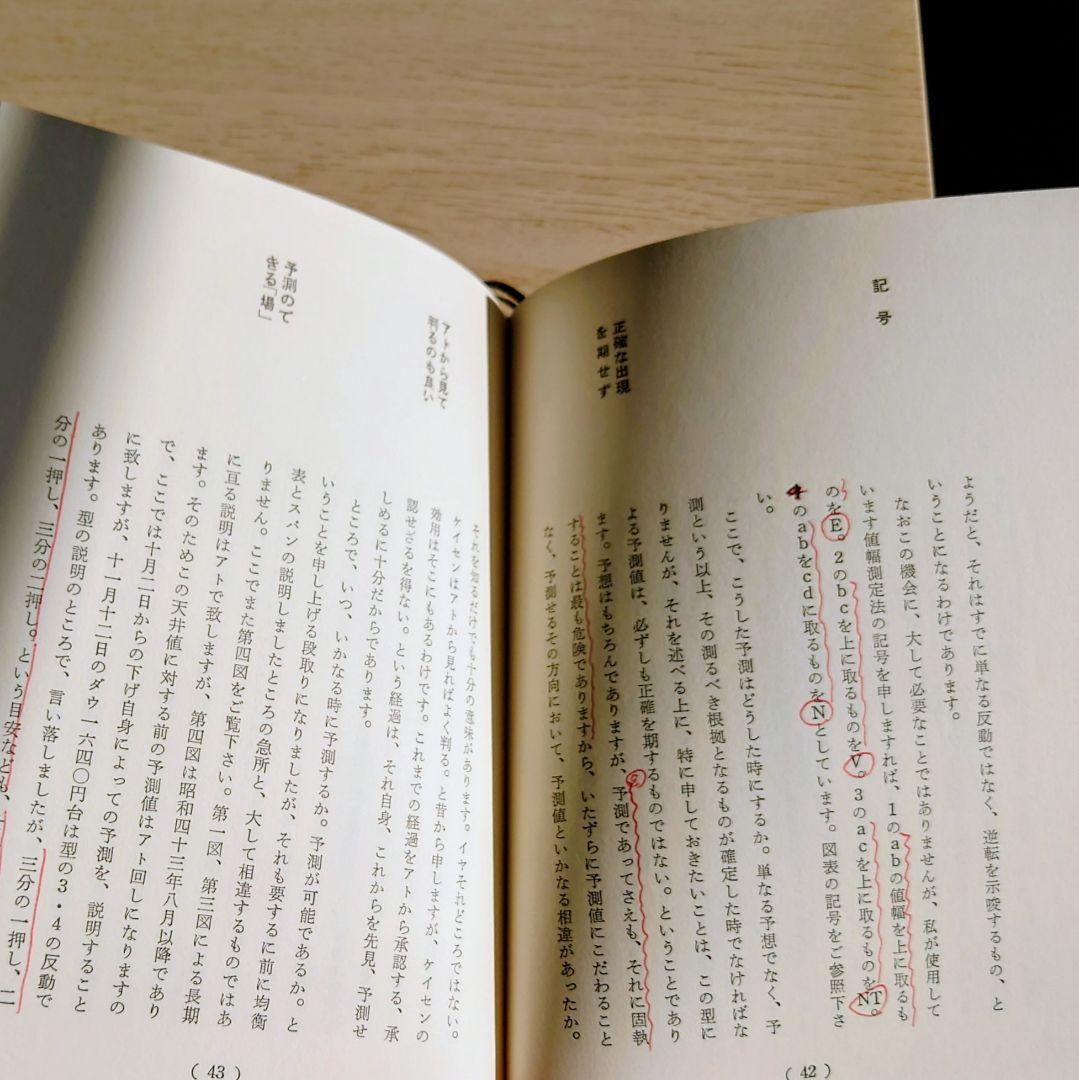 記号
ようだと、それはすでに単なる反動ではなく、逆転を示唆するもの、と
いうことになるわけであります。
なおこの機会に、大して必要なことではありませんが、私が使用して
います値幅測定法の記号を申しますれば、1のabの値幅を上に取るも
のをE。2のbcを上に取るものをV。3のacを上に取るものをNT。
4のabをcdに取るものをNとしています。図表の記号をご参照下さ
い。
正確な出現
を期せず
ここで、こうした予測はどうした時にするか。単なる予想でなく、予
測という以上、その測るべき根拠となるものが確定した時でなければな
りませんが、それを述べる上に、特に申しておきたいことは、この型に
よる予測値は、必ずしも正確を期するものではない。ということであり
ます。予想はもちろんでありますが、予測であってさえも、それに固執
することは最も危険でありますから、いたずらに予測値にこだわること
なく、予測せるその方向において、予測値といかなる相違があったか。
(42)
アトから見て
判るのも良い
それを知るだけでも十分の意味があります。イヤそれどころではない。
ケイセンはアトから見ればよく判る。と昔から申しますが、ケイセンの
効用はそこにもあるわけです。これまでの経過をアトから承認する、承
認せざるを得ない。という経過は、それ自身、これからを先見、予測せ
しめるに十分だからであります。
予測ので
きる「場」
ところで、いつ、いかなる時に予測するか。予測が可能であるか。と
いうことを申し上げる段取りになりましたが、それも要するに前に均衡
表とスパンの説明しましたところの急所と、大して相違するものではあ
りません。ここでまた第四図をご覧下さい。第一図、第三図による長期
に亘る説明はアトで致しますが、第四図は昭和四十三年八月以降であり
ます。そのためこの天井値に対する前の予測値はアト回しになりますの
で、ここでは十月二日からの下げ自身によっての予測を、説明すること
に致しますが、十一月十二日のダウ一六四〇円台は型の3・4の反動で
あります。型の説明のところで、言い落しましたが、三分の一押し、二
分の一押し、三分の二押し。という目安なども、
(43)